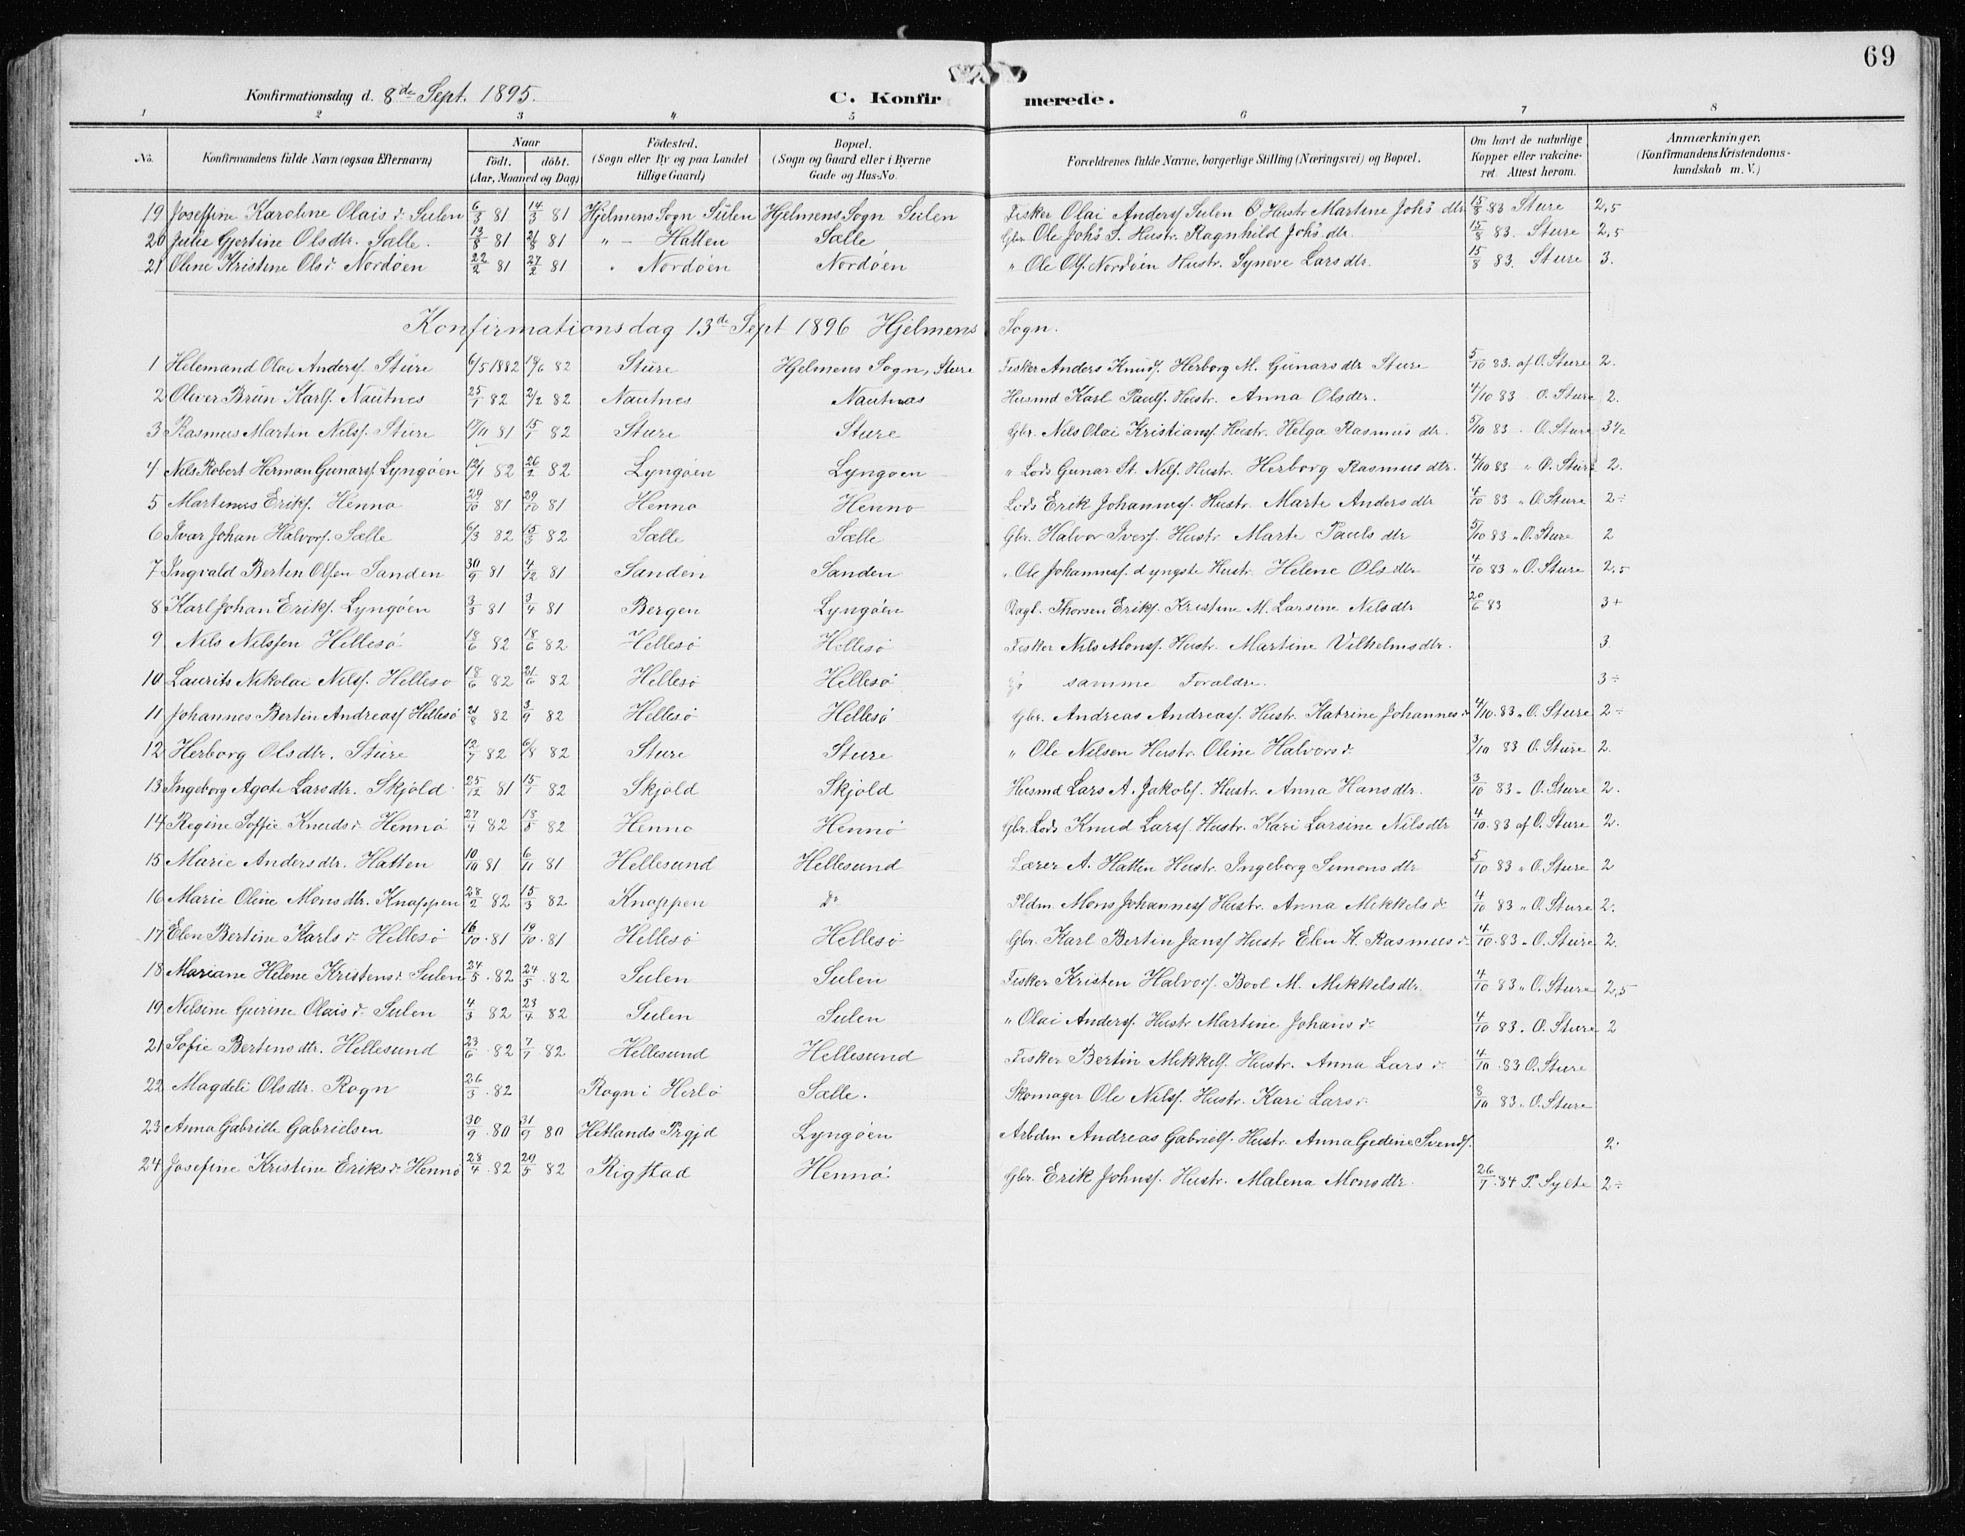 69
Konfirmationsdag d. 8de Sept. 1895. C. Konfirmerede.
1 2 3 4 5 6 7 8
No. Konfirmandens fulde Navn (ogsaa Efternavn) Naar født. døbt. (Aar, Maaned og Dag) Fødested. (Sogn eller By og paa Landet tillige Gaard) Bopæl. (Sogn og Gaard eller i Byerne Gade og Hus-No. Forældrenes fulde Navne, borgerlige Stilling (Næringsvei) og Bopæl. Om havt de naturlige Kopper eller vakcineret. Attest herom. Anmærkninger. (Konfirmandens Kristendomskundskab m. V.)
19 Joseffine Karoline Olais d. Sulen 6/3 81 14/3 81 Hjelmens Sogn Sulen Hjelmens Sogn Sulen Fisker Olai Andersf Sulen O Hustr Martine Johs dtr 15/8 83 Sture 2,5
20 Julie Gjertine Olsdtr. Sælle. 13/8 81 21/8 81 " — Hatten Sælle Gbr. Ole Johs S. Hustr. Ragnhild Johs dtr 15/8 83. Sture 2,5
21 Oline Kristine Olsd Nordøen 22/2 81 27/2 81 " Nordøen Nordøen " Ole Olf. Nordøen Hustr. Syneve Larsdtr. 15/8 83. Sture 3.
Konfirmationsdag 13de Sept 1896 Hjelmens Sogn.
1 Helemand Olai Andersf. Sture 6/5 1882 18/6 82 Sture Hjelmens Sogn, Sture Fisker Anders Knudf. Herborg M. Gunarsdtr Sture 5/10 83. af O. Sture 2.
2 Oliver Brun Karlf. Nautnes 25/1 82 2/2 82 Nautnes Nautnes Husmd Karl Paulf. Hustr. Anna Olsdtr. 4/10 83 O. Sture 2.
3 Rasmus Martin Nilsf. Sture 17/11 81 15/1 82 Sture Sture Gbr. Nils Olai Kristiansf. Hustr. Helga Rasmus dtr. 5/10 83 O. Sture 3½
4 Nils Robert Herman Gunarsf. Lyngøen 12/1 82 26/2 82 Lyngøen Lyngøen " Lods Gunar St. Nilf. Hustr. Herborg Rasmusdtr. 4/10 83 " O. Sture 2.
5 Martenus Erikf. Henno 29/10 81 29/10 81 Henno Henno Lods Erik Johannesf. Hustr. Marte Andersdtr 4/10 83 " O. Sture 2÷
6 Ivar Johan Halvorf. Sælle 6/3 82 15/3 82 Sælle Sælle Gbr. Halvor Iverf. Hustr Marte Paulsdtr 5/10 83 " O. Sture 2
7 Ingvald Bertin Olsen Sanden 30/9 81 4/12 81 Sanden Sanden " Ole Johannesf. d yngste Hustr. Helene Olsdtr 4/10 83 " O. Sture 2,5
8 Karl Johan Erikf. Lyngøen 3/3 81 3/4 81 Bergen Lyngøen Dagl. Thorsen Erikf. Kristine M. Larsine Nilsdtr 20/6 83 3+
9 Nils Nilssen Hellesø 18/6 82 18/6 82 Hellesø Hellesø Fisker Nils Monsf. Hustr. Martine Vilhelmsdtr. 3.
10 Laurits Nikolai Nilsf. Hellesø 18/6 82 21/6 82 Hellesø Hellesø samme Forældre. 3÷
11 Johannes Bertin Andreasf Hellesø 21/8 82 3/9 82 Hellesø Hellesø Gbr. Andreas Andreasf. Hustr. Katrine Johannes d 4/10. 83 " O. Sture 2÷
12 Herborg Olsdtr. Sture 12/7 82 6/8 82 Sture Sture " Ole Nilsen Hustr. Oline Halvorsd 3/10 83 O. Sture 2.
13 Ingeborg Agote Larsdtr. Skjold 25/12 81 15/1 82 Skjold Skjold Husmd Lars A. Jakobf. Hustr. Anna Hansdtr. 3/10 83 " O. Sture 2.
14 Regine Soffie Knudsd. Hennø 27/4 82 18/5 82 Henno Hennø Gbr. Lods Knud Larsf. Hustr. Kari Larsine Nilsdtr 4/10. 83 af O. Sture 2.
15 Marie Andersdtr. Hatten 10/10 81 6/11 81 Hellesund Hellesund Lærer A. Hatten Hustr. Ingeborg Simonsdtr 5/10 83 " O. Sture 2
16 Marie Oline Monsdtr. Knappen 28/2 82 15/3 82 Knappen do Pldm. Mons Johannesf Hustr. Anna Mikkelsd 4/10 83 " O. Sture 2.
17 Elen Bertine Karlsd. Hellesø 16/10. 81 19/10. 81 Hellesø Hellesø Gbr. Karl Bertin Jansf Hustr Elen K. Rasmusd 4/10. 83 " O. Sture 2.
18 Mariane Helene Kristensd. Sulen 24/5. 82 24/5. 82 Sulen Sulen Fisker Kristen Halvorf. Bool M. Mikkelsdtr. 4/10 83 " O. Sture 2,5
19 Nelsine Gurine Olaisd. Sulen 4/3 82 23/4 82 Sulen Sulen " Olai Andersf. Hustr Martine Johansd. 4/10 83. O. Sture 2
21 Sofie Bertinsdtr. Hellesund 23/6. 82 7/7 82 Hellesund Hellesund Fisker Bertin Mikkelf. Hustr. Anna Larsd. 4/10. 83 O. Sture
22 Magdeli Olsdtr. Rogn 26/3. 82 Rogn i Herlø Sælle. Skomager Ole Nilsf. Hustr. Kari Larsd 8/10 83 " O. Sture
23 Anna Gabrille Gabrielsen 30/9. 80 31/9 80 Hetlands Prgjd Lyngøen Arbdm Andreas Gabrielf. Hustr. Anna Gedine Svendf. 2.
24 Josefine Kristine Eriksd. Hennø 28/4. 82 29/5 82 Rigstad Hennø. Gbr. Erik Johnsf. Hustr. Malena Monsdtr. 26/1. 84 P. Sylte 2÷